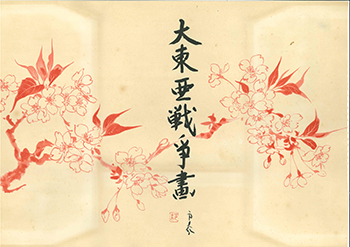 大東亜戦争畫